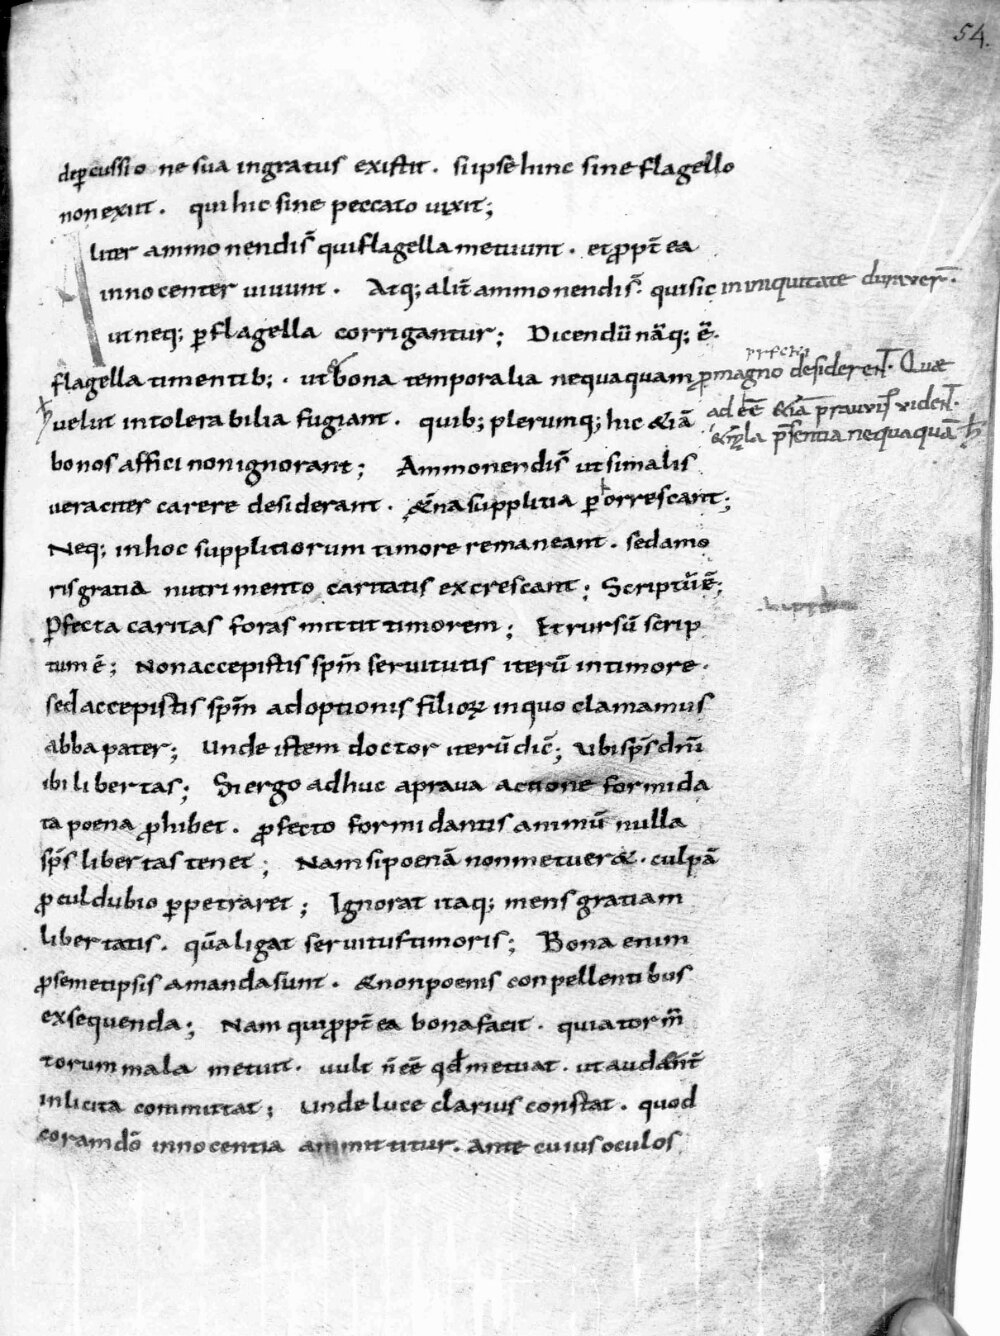 54.
depcussio ne sua ingratus existit. si ipse hinc sine flagello
non exiit. qui hic sine peccato vixit;
Aliter ammonendis̄ qui flagella metuunt. et ppt̄ ea
innocenter vivunt. Atq; alit̄ ammonendis̄. qui sic in iniquitate duraver̄.
ut neq; p flagella corrigantur; Dicendū nāq; ē.
flagella timentib;. ut bona temporalia nequaquam p magno desiderent̄. Quae
adēē &iā pravis viden̄t.
velut intolerabilia fugiant. quib; plerumq; hic &iā
& mala p̄sentia nequaquā
bonos affici non ignorant; Ammonendis̄ ut si malis
veraciter carere desiderant. &̄na supplitia p horrescant;
Neq; in hoc supplitiorum timore remaneant. sed amo
ris gratia nutrimento caritatis excrescant; Scriptū ē;
Pfecta caritas foras mittit timorem; Et rursū scrip
tum ē; Non accepistis spm̄ servitutis iterū in timore.
sed accepistis spm̄ adoptionis filioꝝ in quo clamamus
abba pater; Unde istem doctor iterū dic̄; Ubi sps̄ dnī
ibi libertas; Si ergo adhuc a prava actione formida
ta poena phibet. pfecto formidantis animū nulla
sps̄ libertas tenet; Nam si poenā non metuer&. culpā
pcul dubio ppetraret; Ignorat itaq; mens gratiam
libertatis. quā ligat servitus timoris; Bona enim
p semetipsis amanda sunt. & non poenis conpellentibus
exsequenda; Nam qui ppt̄ ea bona facit. quia torm̄
torum mala metuit. vult n̄ ēē qd̄ metuat. ut audent̄
inlicita committat; Unde luce clarius constat. quod
coram dō innocentia ammittitur. ante cuius oculos